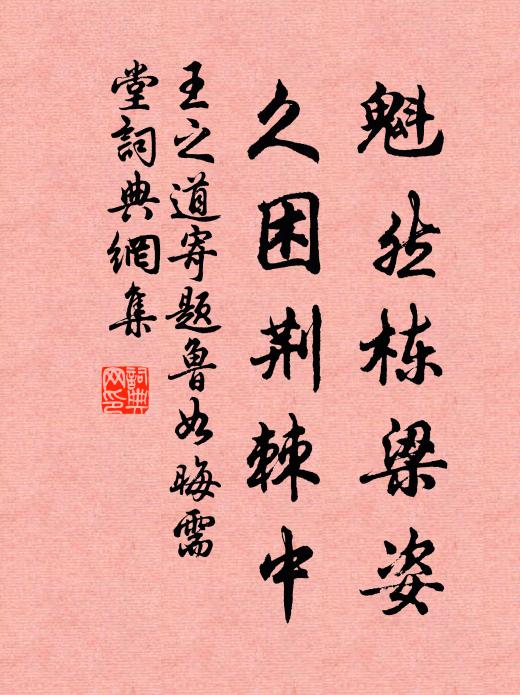 魁然栋梁姿
久困荆棘中
王之道寄题鲁如晦需
堂詞典網集
詞典
网印